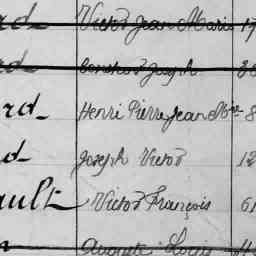 rd Victor Jean Marie 17
d Joseph
rd Henri Pierre Jean Mie 8
d Joseph Victor 12
ault Victor François 61
Auguste Louis